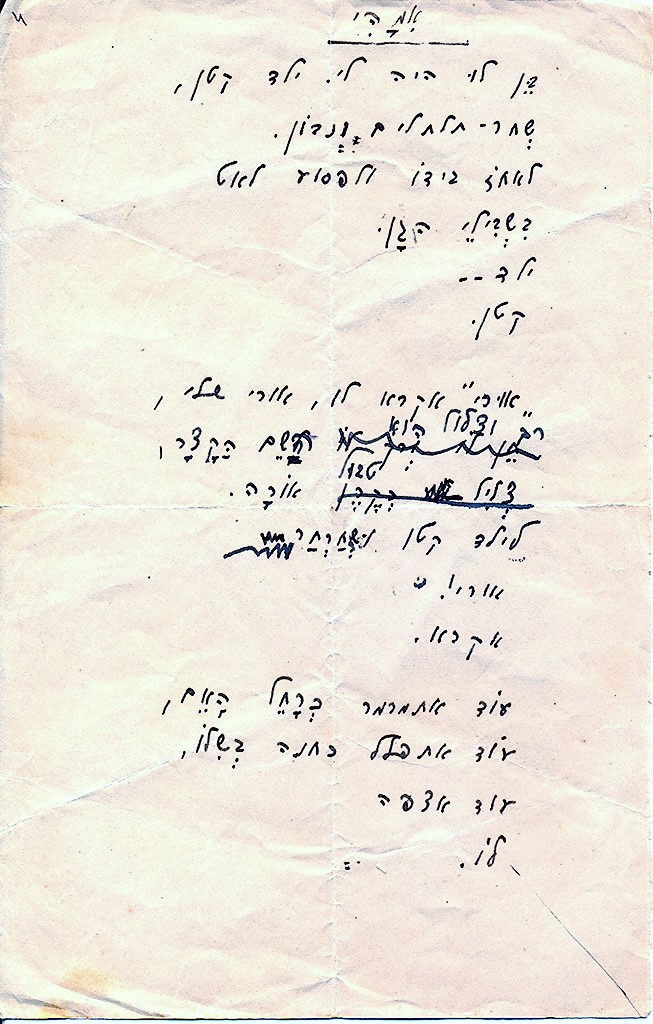 אִמָּהִי
בֵּן לוּ היה לי! ילד קטן,
שְׁחר-תלתלים וְנָבוֹן.
לאחֹז בידוֹ ולפסוע לאט
בִּשְׁבִילֵי הַגָּן.
ילד --
קטן.
"אורי" אקרא לו, אורי שלי,
רַךְ וְצָלוּל הוּא
הַשֵּׁם הַקָּצָר,
טבול
צְלִיל אוֹרָה.
לילד קטן וּשְׁחַרְחַר
אורי! "
אקרא.
עוֹד אתמרמר כְּרָחֵל הָאֵם,
עוֹד אתפלל כחנה בְּשִׁלֹה,
עוד אצפה
לוֹ.